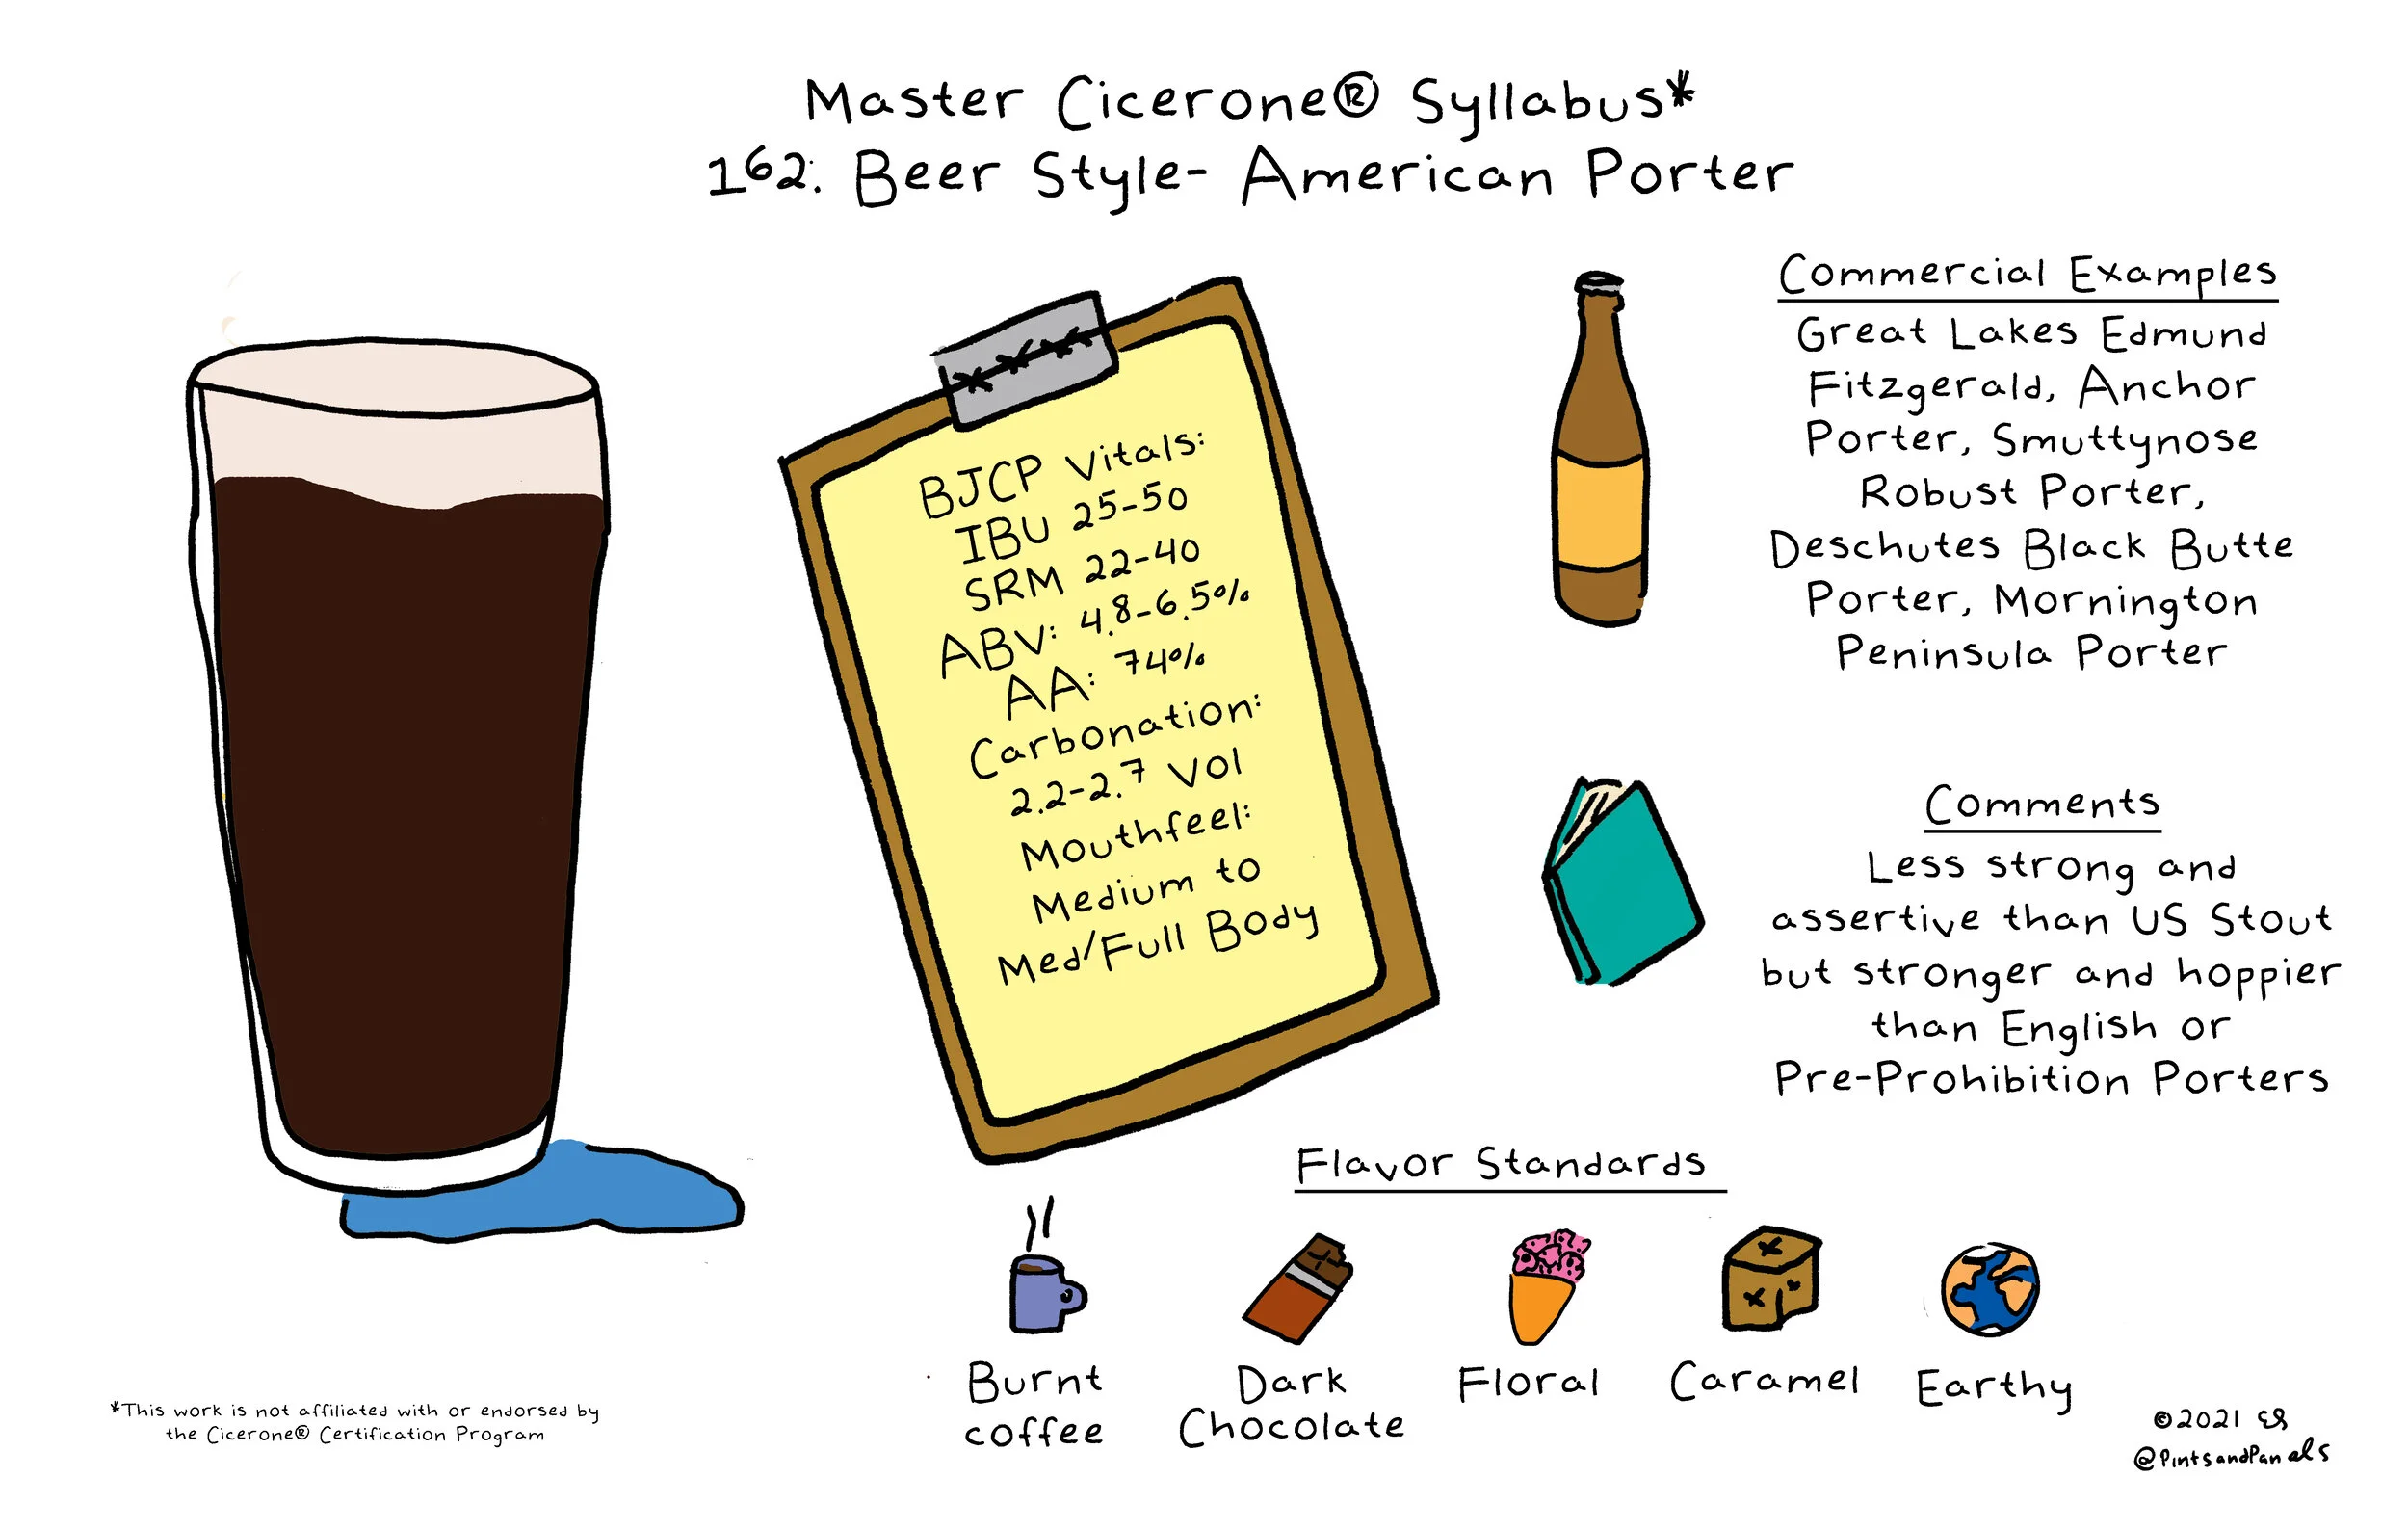 Master Cicerone® Syllabus*
162: Beer Style- American Porter
BJCP Vitals:
IBU 25-50
SRM 22-40
ABV: 4.8-6.5%
AA: 74%
Carbonation:
2.2-2.7 vol
Mouthfeel:
Medium to
Med/Full Body
Commercial Examples
Great Lakes Edmund
Fitzgerald, Anchor
Porter, Smuttynose
Robust Porter,
Deschutes Black Butte
Porter, Mornington
Peninsula Porter
Comments
Less strong and
assertive than US Stout
but stronger and hoppier
than English or
Pre-Prohibition Porters
Flavor Standards
Burnt
coffee
Dark
Chocolate
Floral
Caramel
Earthy
*This work is not affiliated with or endorsed by
the Cicerone® Certification Program
©2021
@PintsandPanels